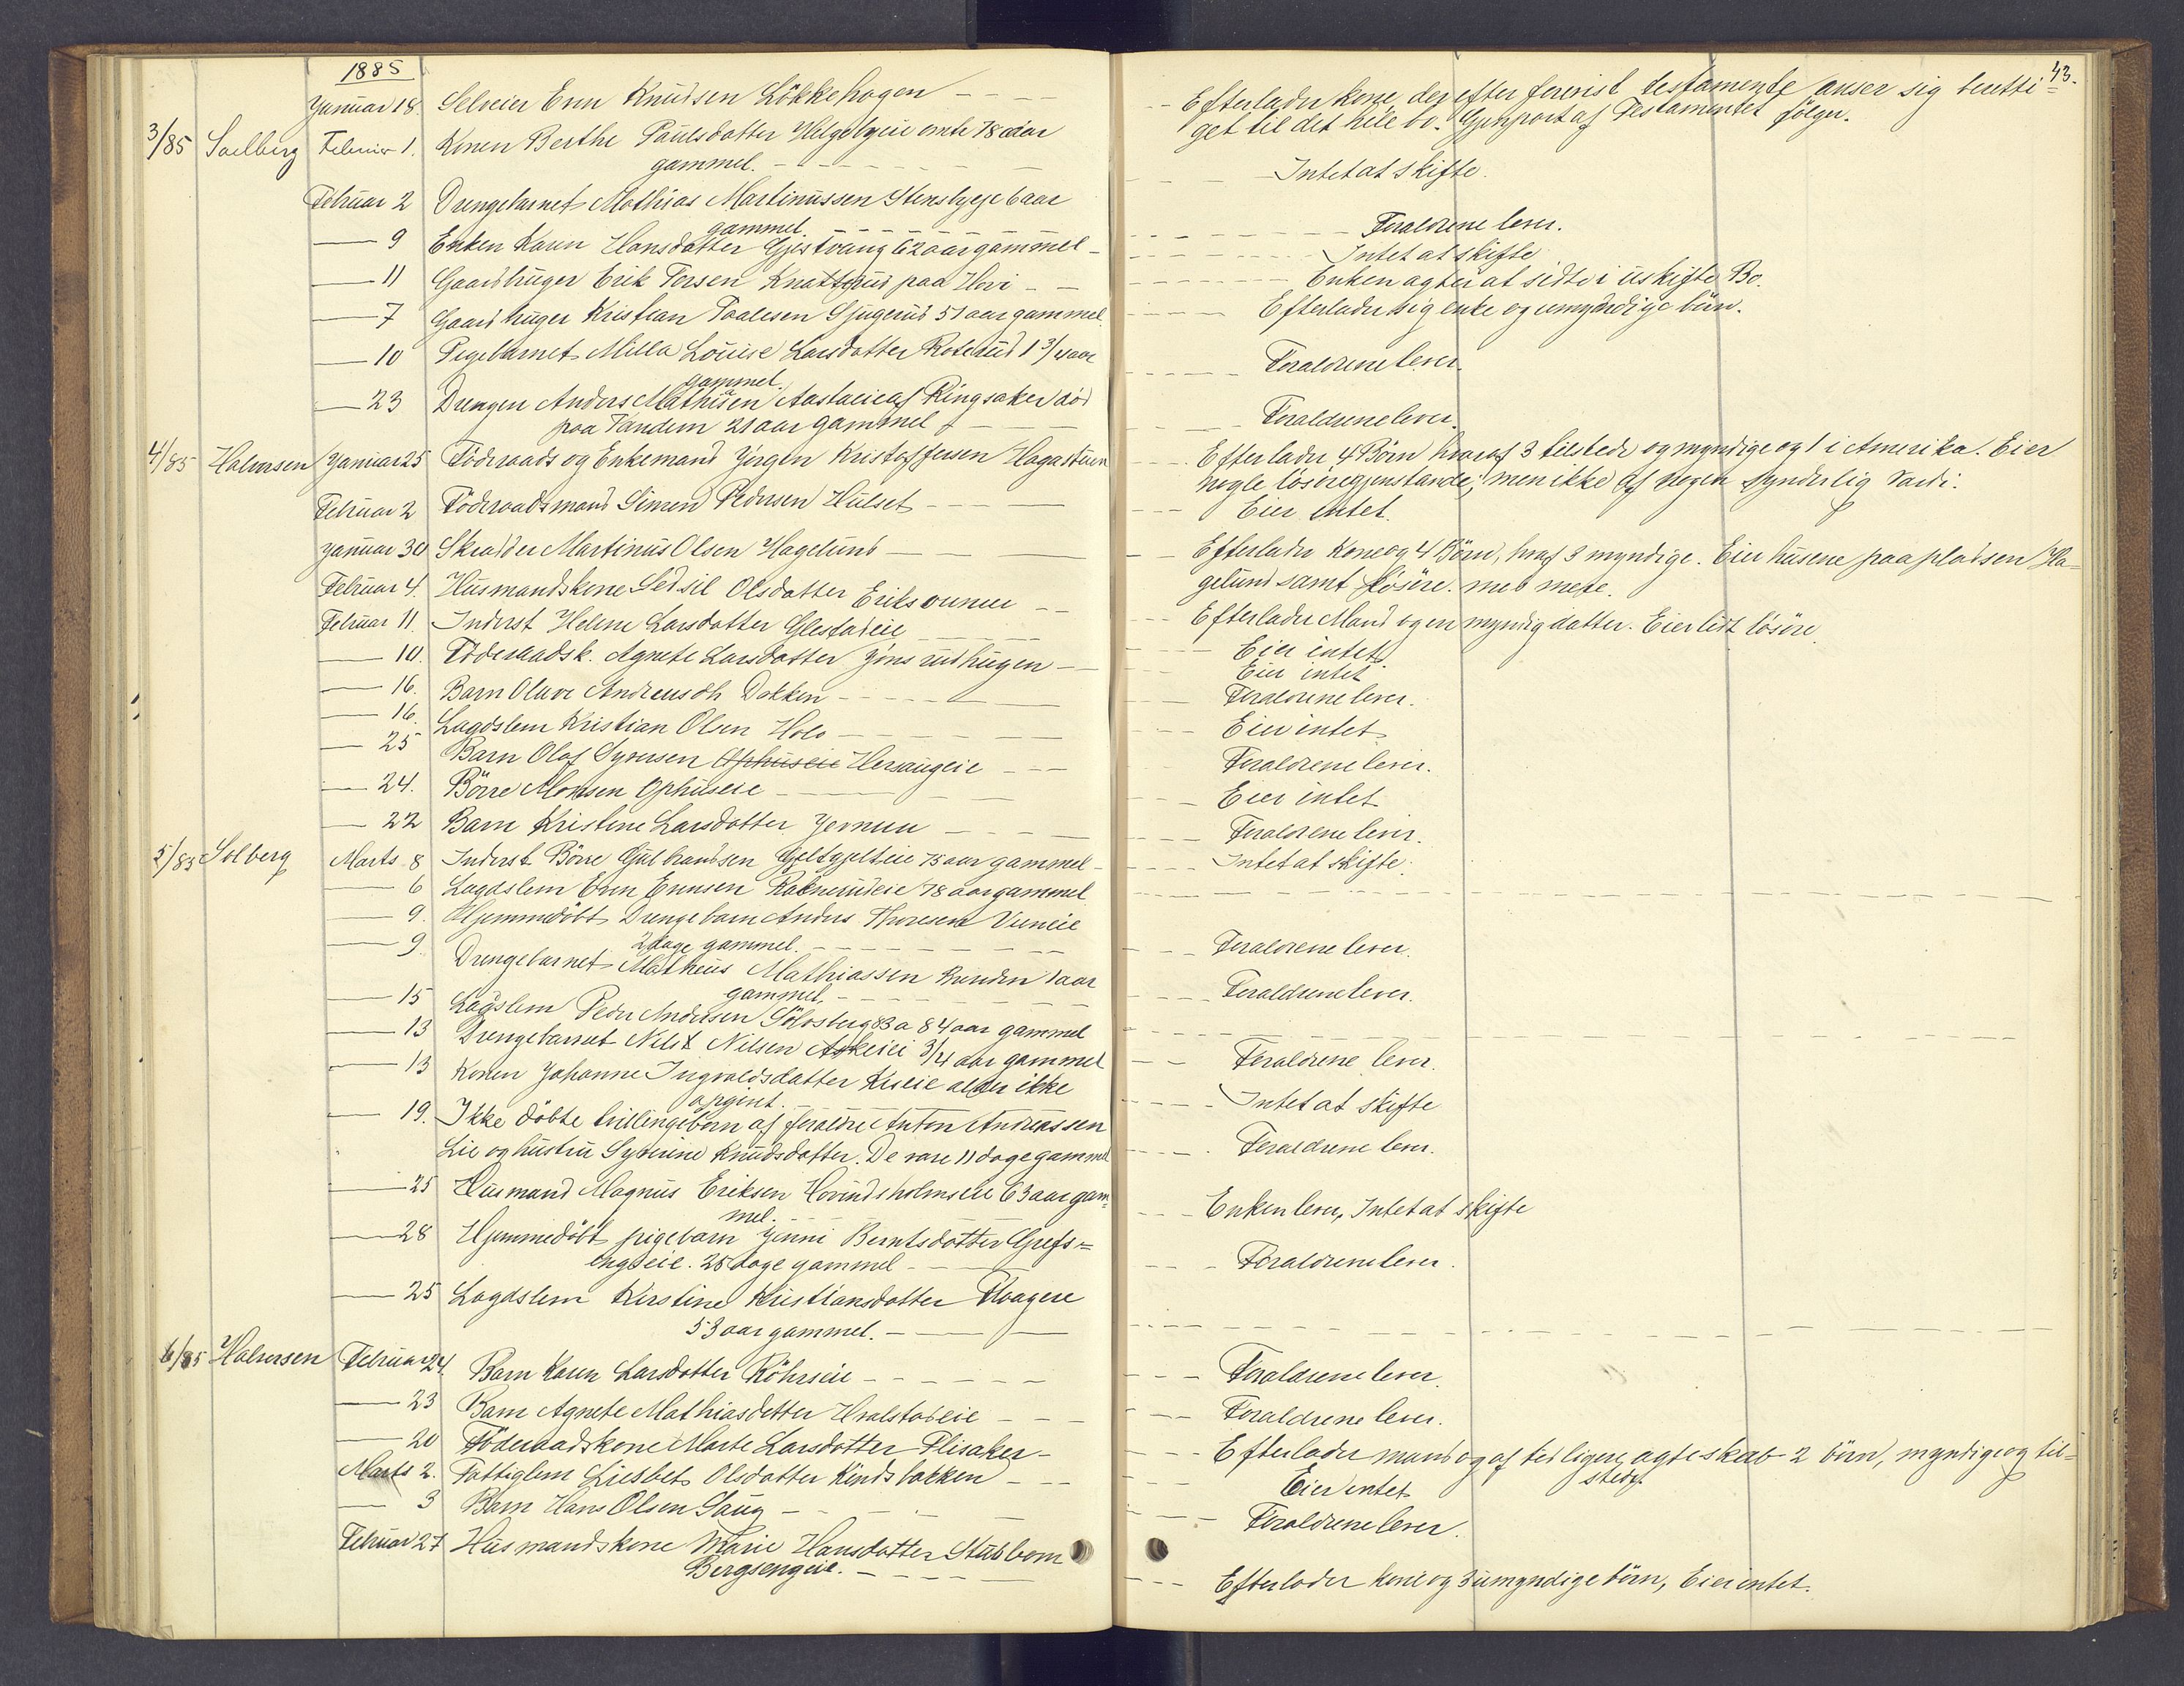 1885
43.
Januar 18. Selveier Enn Knudsen Lökkehagen - - - Efterlader kone, der efter forevist testamente anser sig beretti-
get til det hele bo. Gjenpart af Testamentet fölger.
3/85 Soelberg Februar 1. Konen Berthe Paulsdatter Helgebyeie omtr 78 aar
gammel. - - - Intet at skifte.
Februar 2 Drengebarnet Mathias Martinussen Stensbyeje 6 aar
gammel. - - - Foraldrene lever.
9 Enken Karen Hansdatter Gjestvang 62 aar gammel - Intet at skifte
11 Gaardbruger Erik Torsen Knattprud paa Hovi - - Enken agter at sidte i uskiftet Bo.
7 Gaardbruger Kristian Paalesen Sjugerud 51 aar gammel. Efterlader sig enke og umyndige börn.
10 Pigebarnet Milla Louise Larsdatter Roterud 1 3/4 aar
gammel. Foraldrene lever.
23 Drengen Anders Mathisen Aastadeie af Ringsaker död
paa Tandem 21 aar gammel - - Foraldrene lever.
4/85 Halvorsen Januar 25 Föderaads og Enkemand Jörgen Kristoffersen Hagastuen - Efterlader 4 Börn hvoraf 3 tilstede og myndige og 1 i Amerika. Eier
nogle lösöregjenstande, men ikke af nogen synderlig Vardi.
Februar 2 Föderaadsmand Simen Pedersen Hulset - - - Eier intet.
Januar 30 Skradder Martinus Olsen Hagelund - - Efterlader Kone og 4 Börn, hraf 3 myndige. Eier husene paa pladsen Ha-
gelund samt lösöre. med mere.
Februar 4. Husmandskone Sidsil Olsdatter Eriksrunen - - Efterlader Mand og en myndig datter. Eier lidt lösöre
Februar 11. Inderst Helene Larsdatter Glestadeie - - Eier intet.
10. Föderaadsk. Agnete Larsdatter Jonsrudhugen - - Eier intet
16. Barn Olave Andreasdh. Dakken - - - Foraldrene lever.
16. Lagdslem Kristian Olsen Holo - - - Eier intet
25 Barn Olaf Syversen Ophuseie Hersaugeie - - - Foraldrene lever.
24. Börre Monsen Ophuseie - - - Eier intet
22 Barn Kristine Larsdatter Jevnuu - - - Foraldrene lever.
5/85 Solberg Marts 8 Inderst Börre Gulbrandsen Geltgelteie 75 aar gammel - Intet at skifte.
6 Lagdslem Enn Ennsen Rabnerudeie 78 aar gammel - - -
9. Hjemmedöbt Drengebarn Anders Thoresen Vuneie
2 dage gammel. - - - Foraldrene lever.
9 Drengebarnet Matheus Mathiassen Kunden 1 aar
gammel. - - - Foraldrene lever.
15 Lagdslem Peder Andersen Sölvsberg 83 a 84 aar gammel - - -
13 Drengebarnet Nils Nilsen Askeiei 3/4 aar gammel - - Foraldrene lever.
13 Konen Johanne Ingvoldsdatter Kiseie alder ikke
opgivet. - - - Intet at skifte
19. Ikke döbte tvillingebörn af foraldre Anton Andreassen
Lie og hustru Syverine Knudsdatter. De vare 11 dage gammel - - Foraldrene lever.
25 Husmand Magnus Eriksen Hovindsholmseie 63 aar gam-
mel. - - - Enken lever, Intet at skifte
28 Hjemmedöbt pigebarn Jenni Berntsdatter Grefs-
engseie. 25 dage gammel - - - Foraldrene lever.
25 Lagdslem Kirstine Kristiansdatter Thaagere
53 aar gammel. - - -
6/85 Halvorsen Februar 24. Barn Karen Larsdatter Röhrseie - - - Foraldrene lever.
23 Barn Agnete Mathiasdatter Hvalstadeie - - - Foraldrene lever.
20 Föderaadskone Marte Larsdatter Flisaker - - - Efterlader mand og af tidligere agteskab 2 börn, myndige og til-
stede.
Marts 2. Fattiglem Liesbet Olsdatter Kindsbakken - - Eier intet
3 Barn Hans Olsen Saug - - - Foraldrene lever.
Februar 27 Husmandskone Marie Hansdatter Stubbom
Bergsengeie. - - - Efterlader kone og 3 umyndige börn, Eier intet.